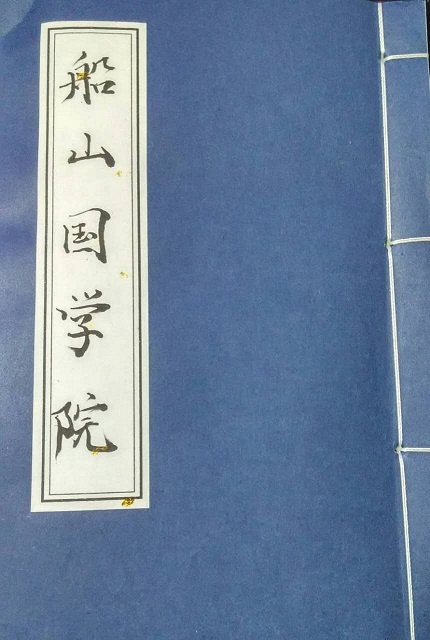 船山国学院